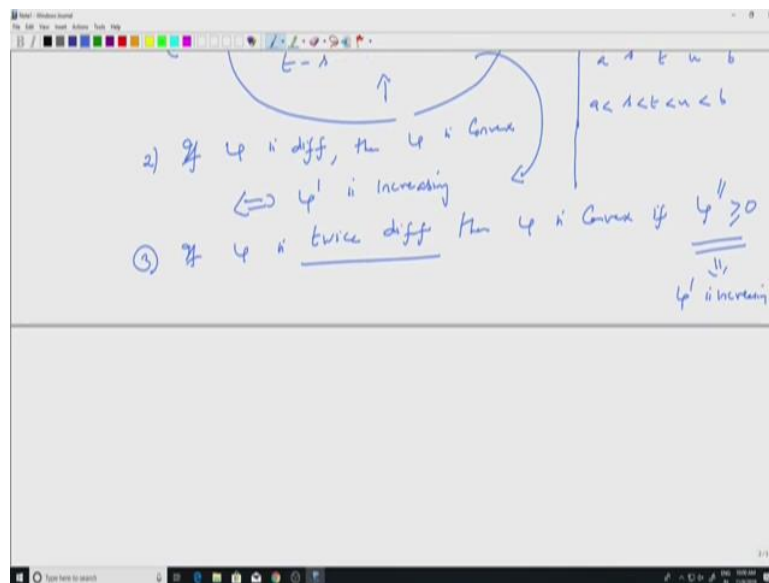 Note1 - Windows Journal
File Edit View Insert Actions Tools Help
t - s
a s t u b
a < s < t < u < b
2) If φ is diff, then φ is Convex
⇔ φ' is increasing
③ If φ is twice diff then φ is Convex if φ'' ≥ 0
⇓
φ' is increasing
Type here to search
ENG